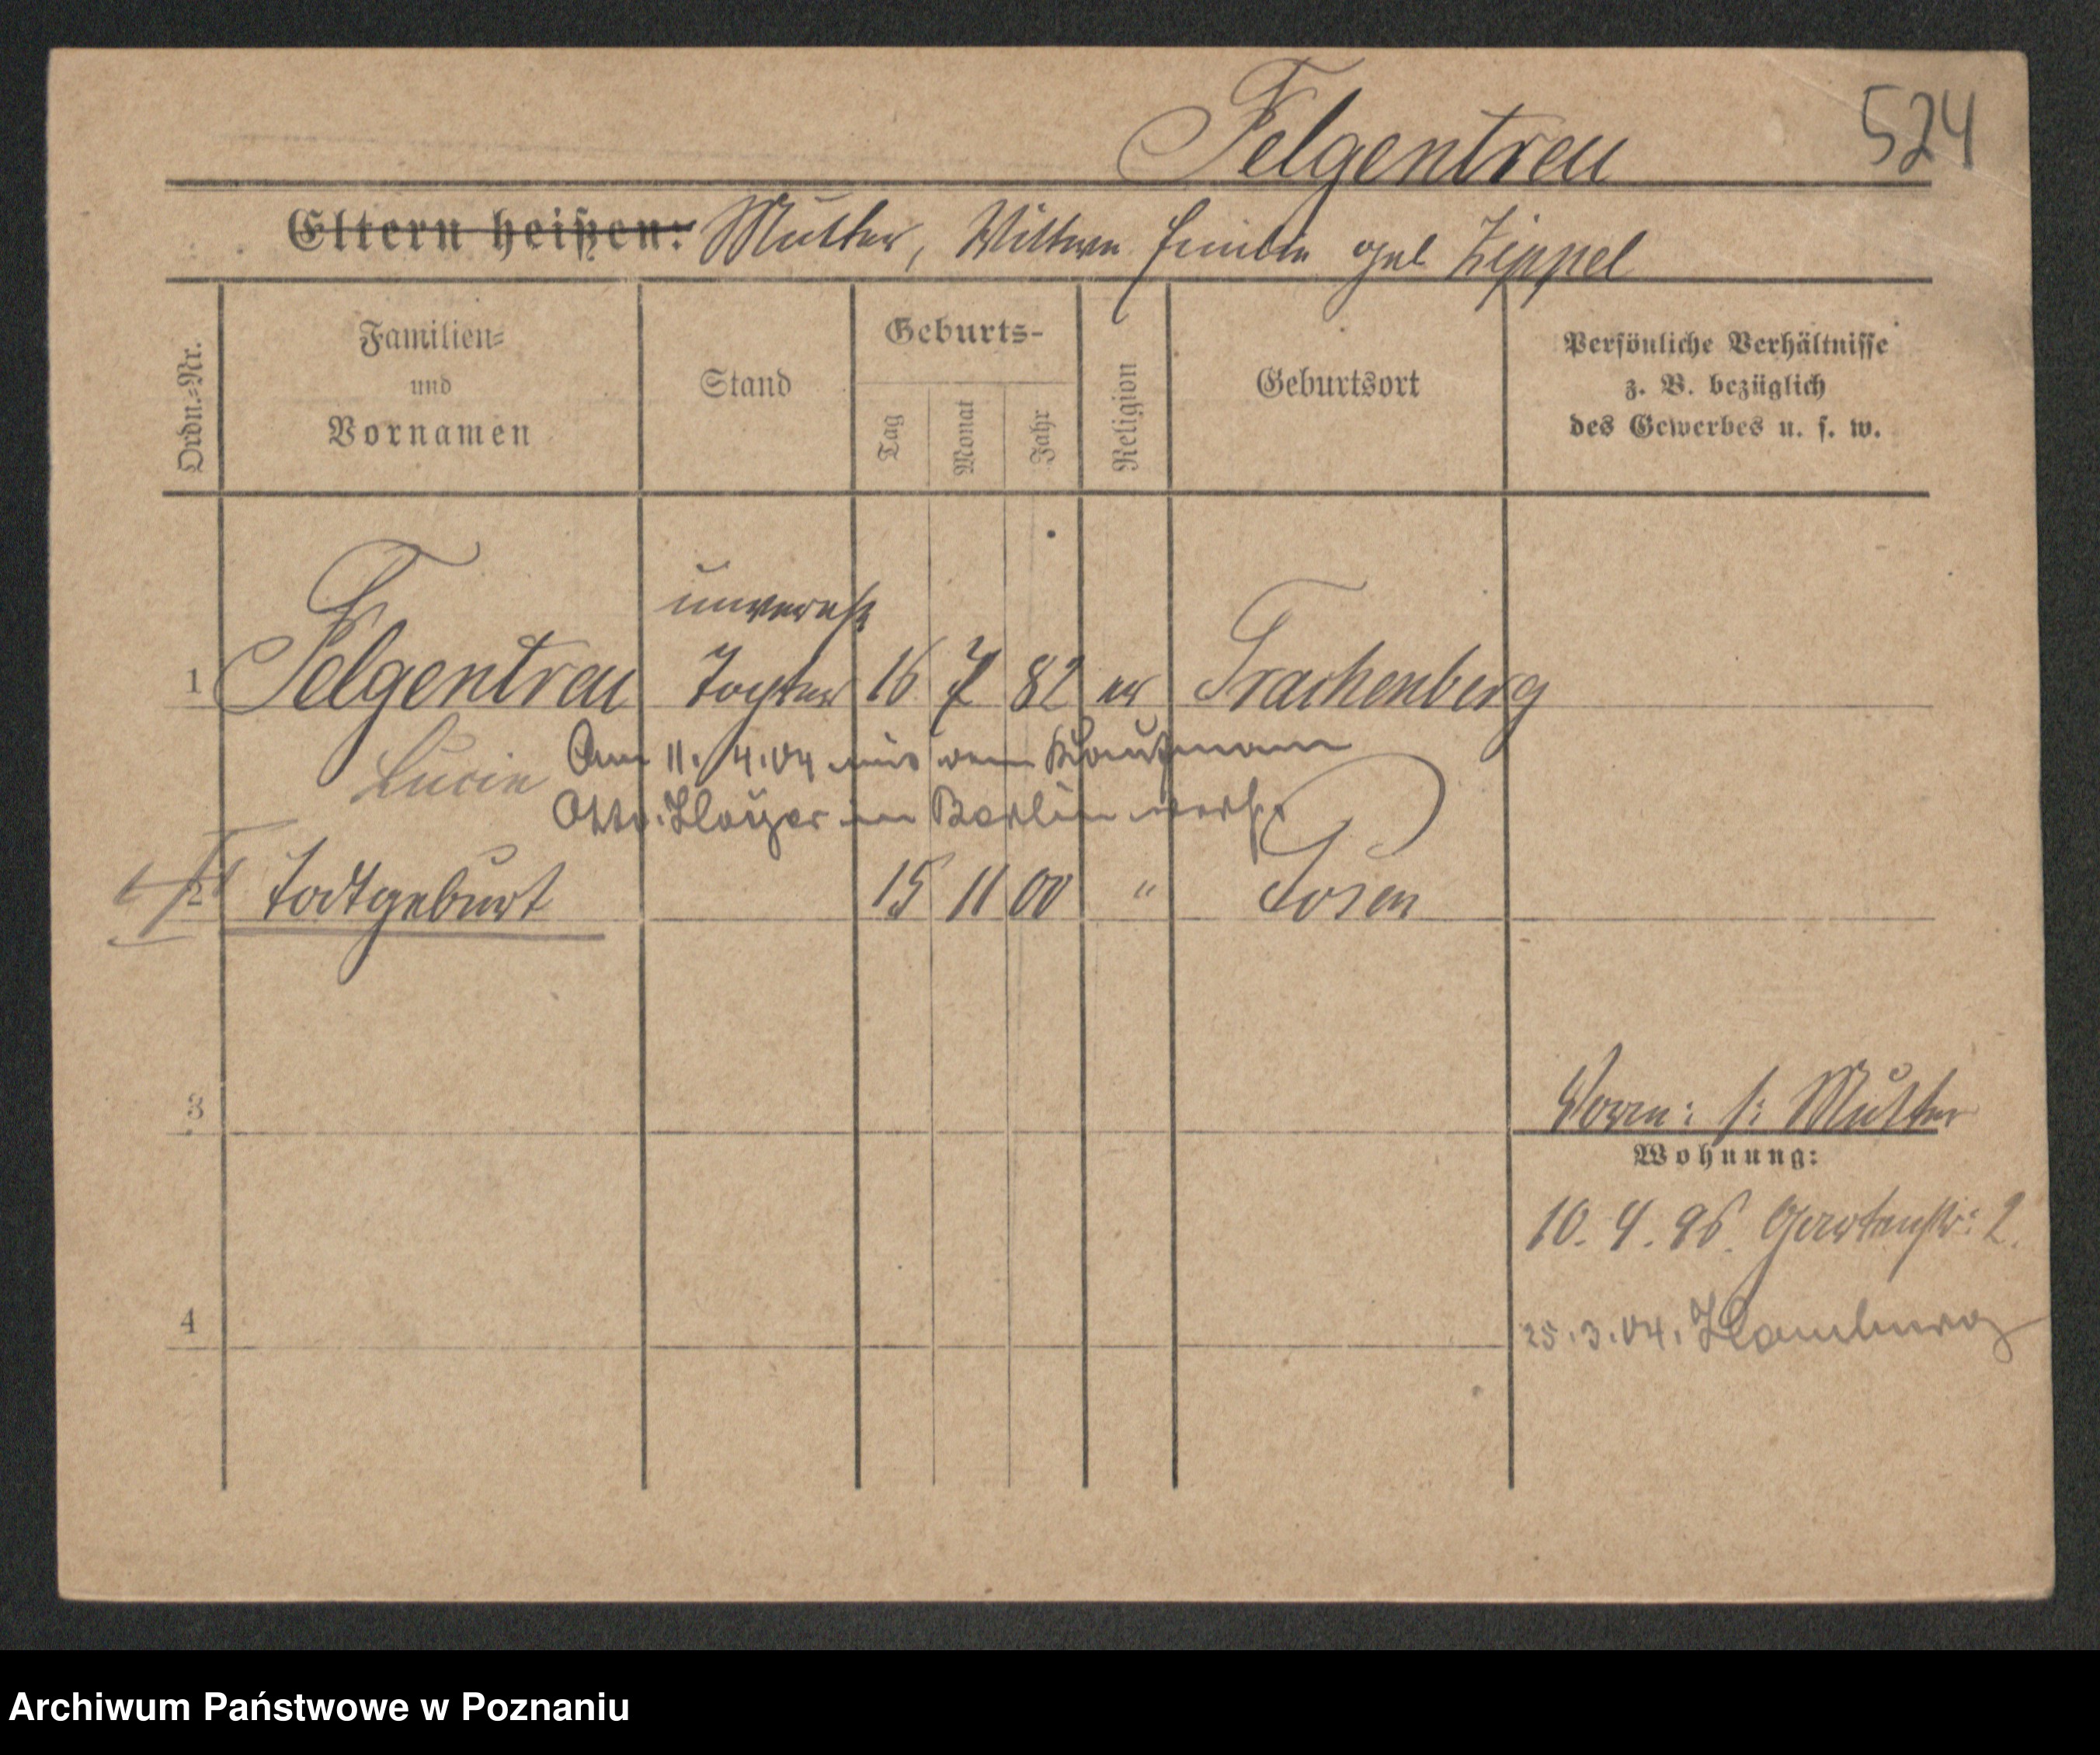 524
Felgentreu
Eltern heißen: Mutter, Wittwe Emilie geb Zippel
Ordn.-Nr.
Familien-
und
Vornamen
Stand
Geburts-
Tag
Monat
Jahr
Religion
Geburtsort
Persönliche Verhältnisse
z. B. bezüglich
des Gewerbes u. s. w.
unvereh
1 Felgentreu Tochter 16 7 82 ev Trachenberg
Lucie
Am 11. 4. 04 mit dem Kaufmann
Otto in Berlin verh.
2 Todtgeburt 15 11 00 " Posen
3
Vorm: s: Mutter
Wohnung:
10. 4. 96. Gartenstr: 2.
4
25. 3. 04. Hamburg
Archiwum Państwowe w Poznaniu